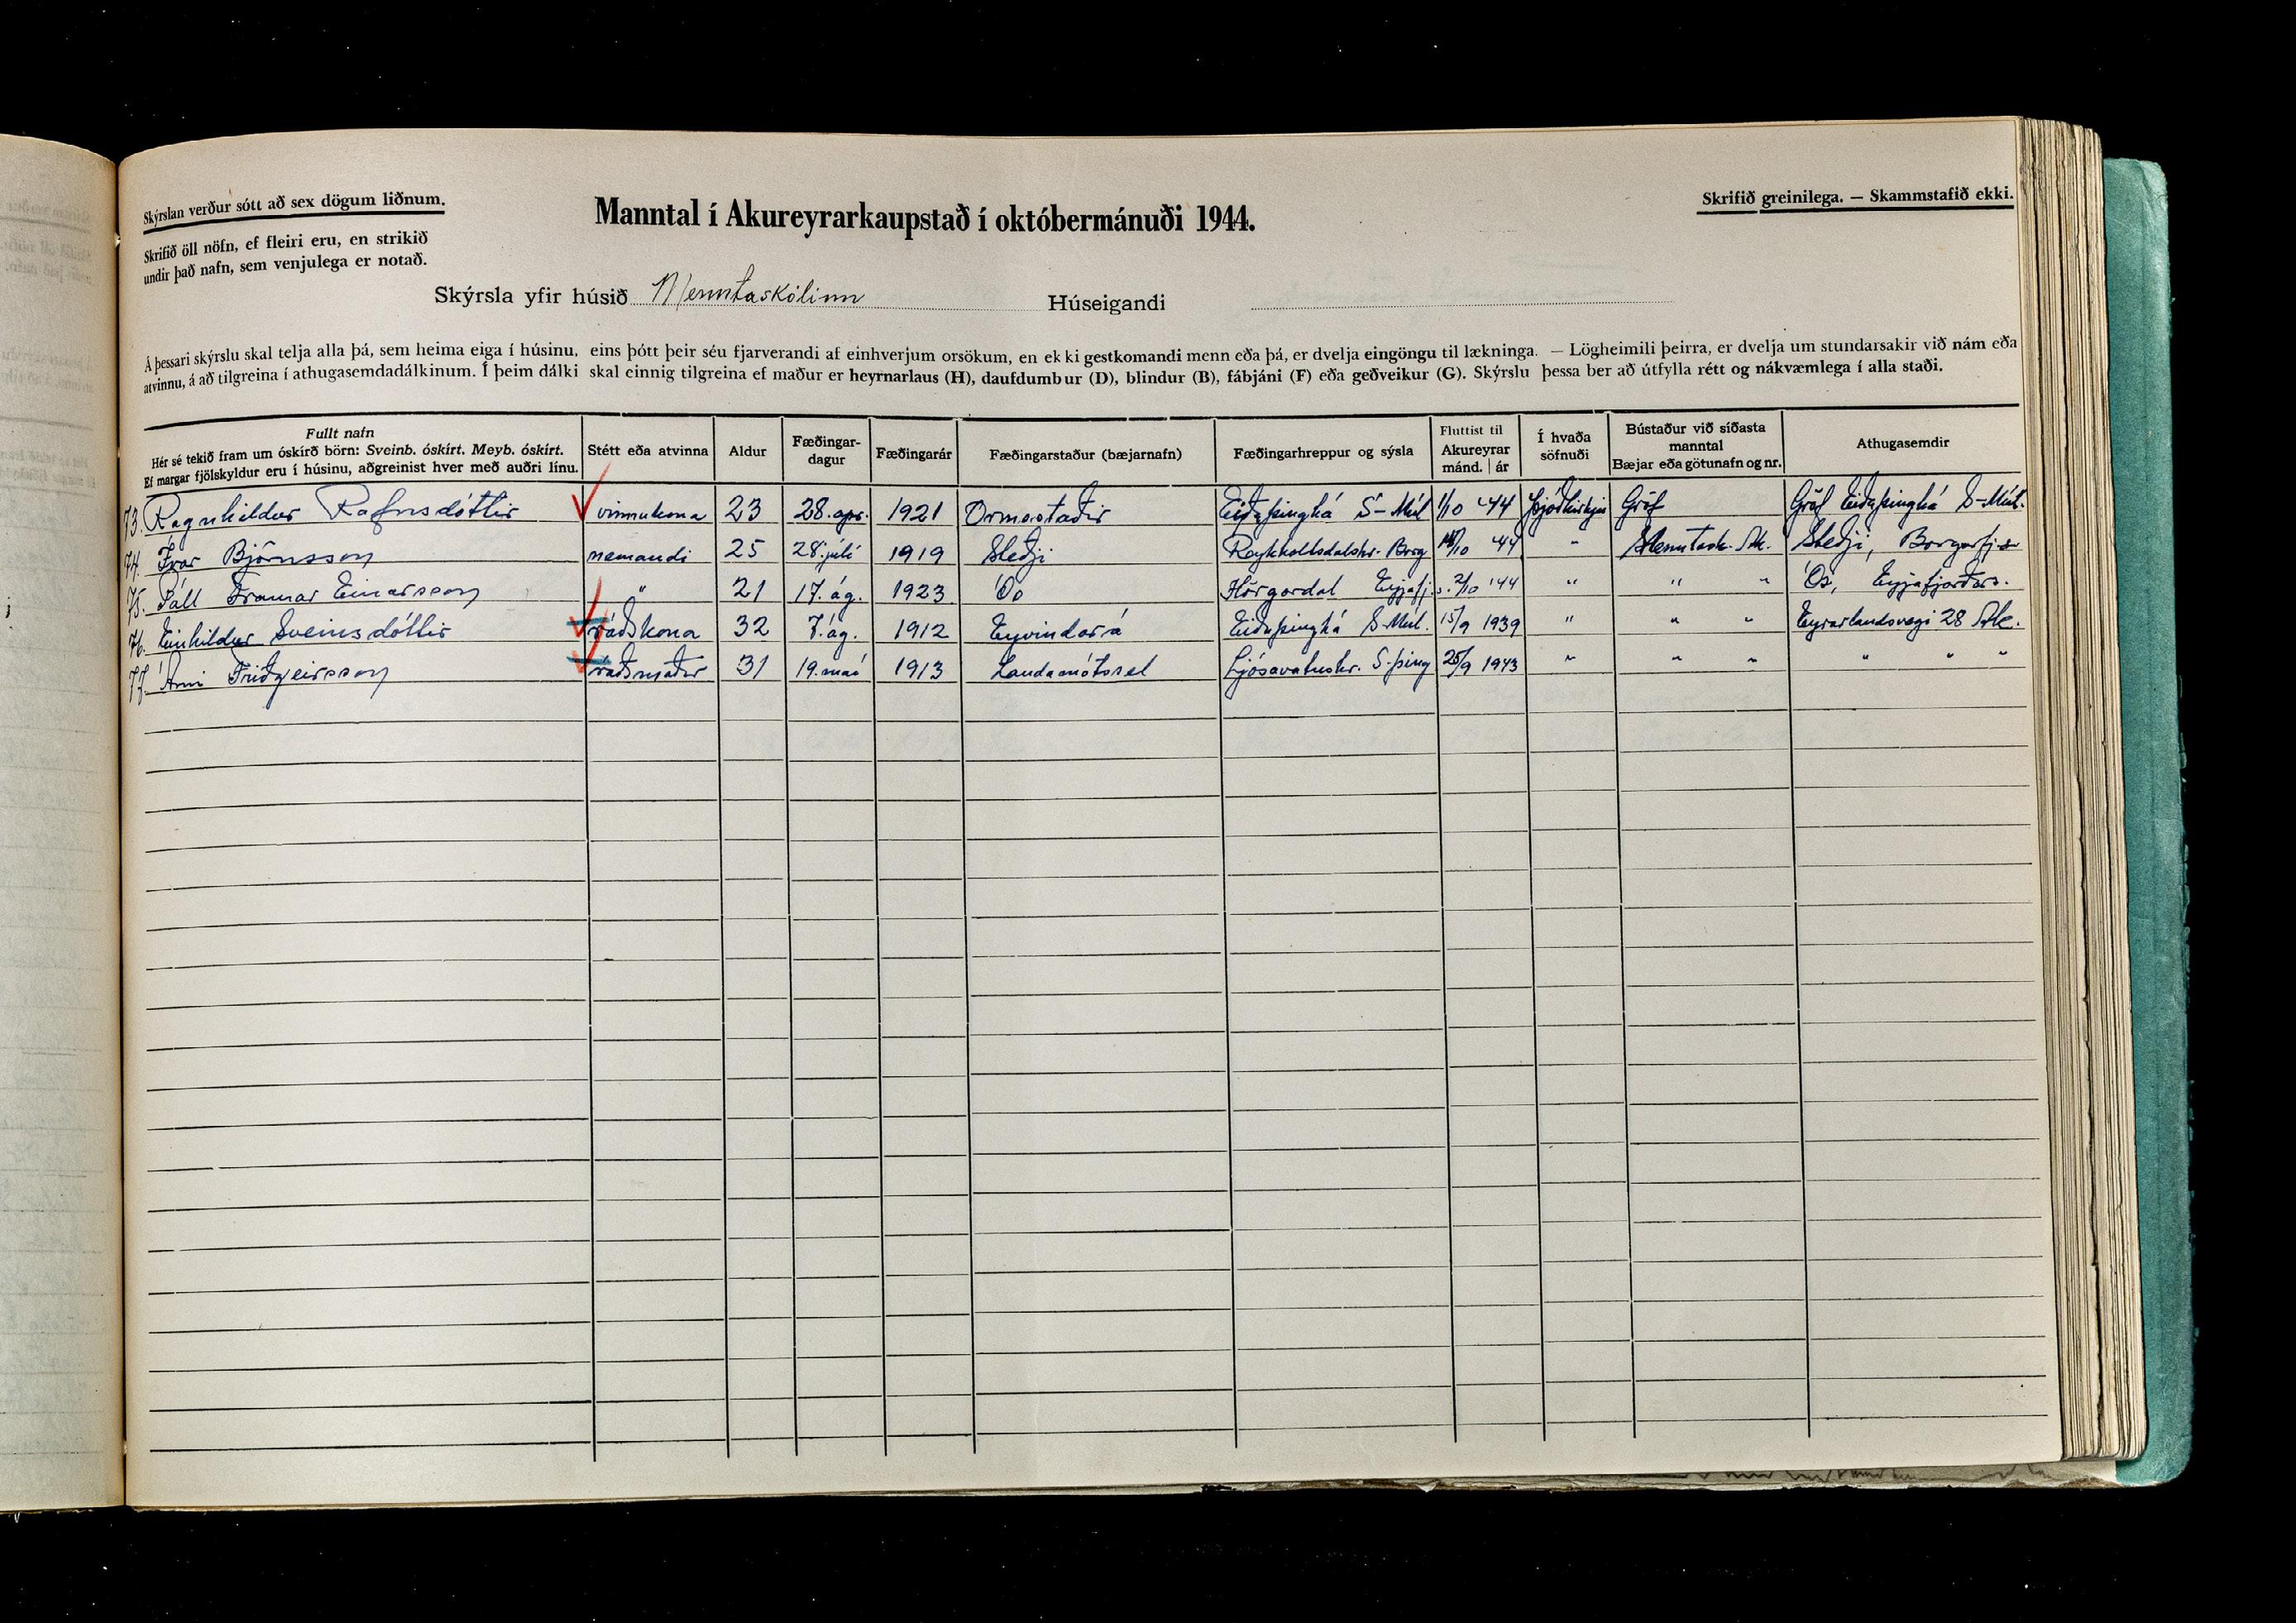 Skýrslan verður sótt að sex dögum liðnum.
Skrifið öll nöfn, ef fleiri eru, en strikið
undir það nafn, sem venjulega er notað.
Manntal í Akureyrarkaupstað í októbermánuði 1944.
Skrifið greinilega. — Skammstafið ekki.
Skýrsla yfir húsið Menntaskólinn Húseigandi
Á þessari skýrslu skal telja alla þá, sem heima eiga í húsinu, eins þótt þeir séu fjarverandi af einhverjum orsökum, en ekki gestkomandi menn eða þá, er dvelja eingöngu til lækninga. — Lögheimili þeirra, er dvelja um stundarsakir við nám eða
atvinnu, á að tilgreina í athugasemdadálkinum. Í þeim dálki skal einnig tilgreina ef maður er heyrnarlaus (H), daufdumbur (D), blindur (B), fábjáni (F) eða geðveikur (G). Skýrslu þessa ber að útfylla rétt og nákvæmlega í alla staði.
Fullt nafn
Hér sé tekið fram um óskírð börn: Sveinb. óskírt. Meyb. óskírt.
Ef margar fjölskyldur eru í húsinu, aðgreinist hver með auðri línu.
Stétt eða atvinna
Aldur
Fæðingar-
dagur
Fæðingarár
Fæðingarstaður (bæjarnafn)
Fæðingarhreppur og sýsla
Fluttist til
Akureyrar
mánd. | ár
Í hvaða
söfnuði
Bústaður við síðasta
manntal
Bæjar eða götunafn og nr.
Athugasemdir
73. Ragnhildur Rafnsdóttir vinnukona 23 28. apr. 1921 Ormsstaðir Eiðaþinghá S-Múl 1/10 '44 Þjóðkirkju Gröf Gröf Eiðaþinghá S-Múl.
74. Ívar Björnsson nemandi 25 28. júlí 1919 Steðji Reykholtsdalshr. Borg /10 '44 " Menntask. Ak. Steðji, Borgarfj.s
75. Páll Framar Einarsson " 21 17. ág. 1923 Ós Hörgárdal Eyjafj.s. 2/10 '44 " " " Ós, Eyjafjarðars.
76. Einhildur Sveinsdóttir ráðskona 32 7. ág. 1912 Eyvindará Eiðaþinghá S-Múl. 15/9 1939 " " " Eyrarlandsvegi 28 Ak.
77. Árni Friðgeirsson ráðsmaður 31 19. maí 1913 Landamótssel Ljósavatnshr. S-þing 25/9 1943 " " " " " "